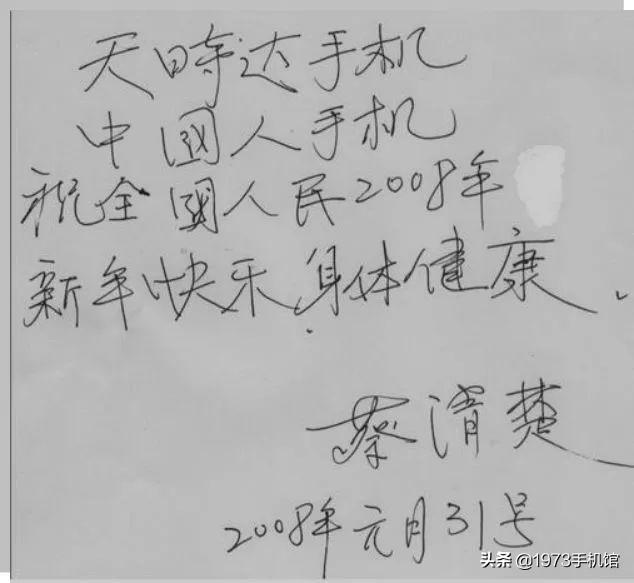 天时达手机
中國人手机
祝全國人民2008年
新年快乐,身体健康.
蔡清楚
2008年元月31号
头条 @1973手机馆